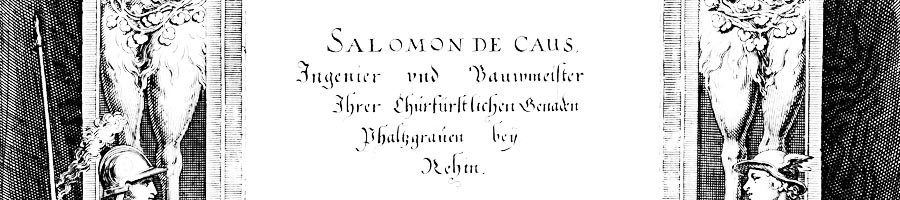 SALOMON DE CAUS.
Ingenier vnd Bauwmeister
Ihrer Chürfürstlichen Genaden
Phaltzgrauen bey
Rehin.